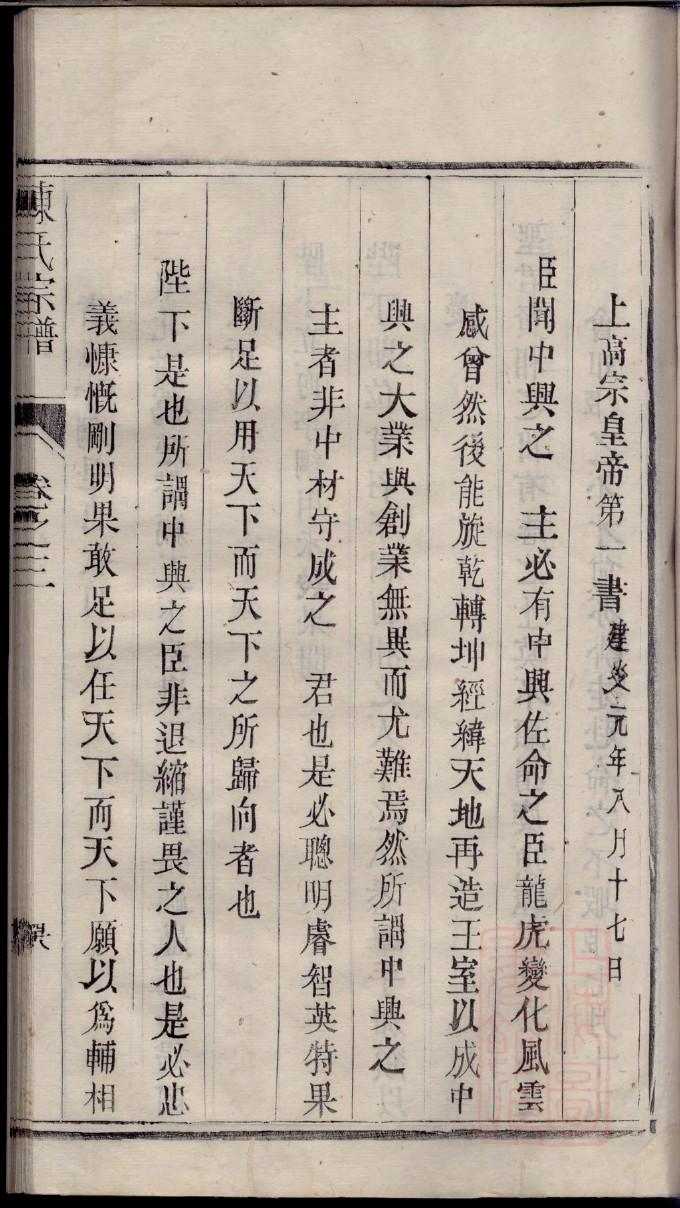 上高宗皇帝第一書建炎元年八月十七日
臣聞中興之　主必有中興佐命之臣龍虎變化風雲
感曾然後能旋乾轉坤經緯天地再造王室以成中
興之大業與創業無異而尤難焉然所謂中興之
主者非中材守成之　君也是必聰明睿智英特果
斷足以用天下而天下之所歸向者也
陛下是也所謂中興之臣非退縮謹畏之人也是必忠
義慷慨剛明果敢足以任天下而天下願以爲輔相
陳氏宗譜
卷之三